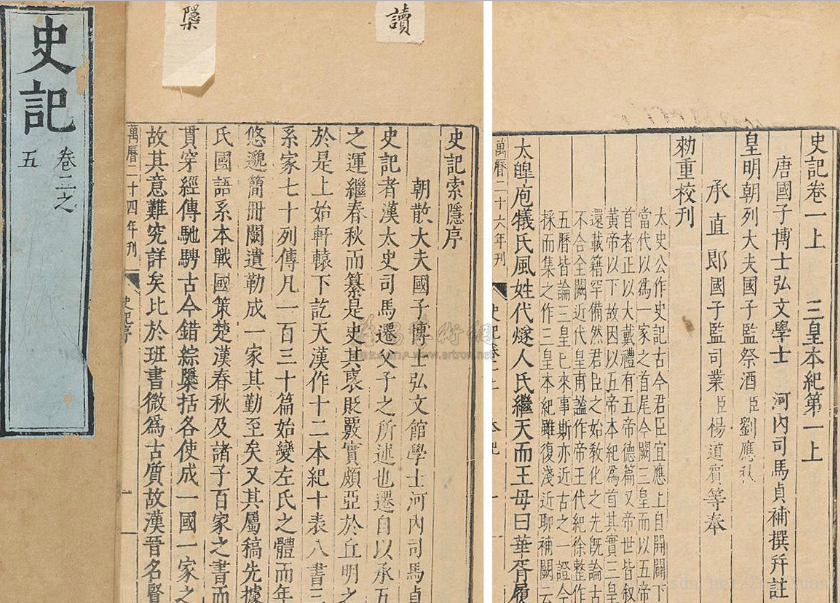 史記
卷二之
五
讀
史記索隱序
朝散大夫國子博士弘文館學士河內司馬貞
史記者漢太史司馬遷父子之所述也遷自以承五
之運繼春秋而纂是史其褒貶覈實頗亞於丘明之
於是上始軒轅下訖天漢作十二本紀十表八書三
系家七十列傳凡一百三十篇始變左氏之體而年
悠邈簡冊闕遺勒成一家其勤至矣又其屬稿先據
氏國語系本戰國策楚漢春秋及諸子百家之書而
貫穿經傳馳騁古今錯綜檃括各使成一國一家之
故其意難究詳矣比於班書微爲古質故漢晉名賢
萬曆二十四年刊
史記序
一
史記卷一上 三皇本紀第一上
唐國子博士弘文學士 河內司馬貞補撰幷註
皇明朝列大夫國子監祭酒臣劉應秋
承直郎國子監司業臣楊道賓等奉
勑重校刊
太史公作史記古今君臣宜應上自開闢下
當代以爲一家之首尾今闕三皇而以五帝
首者正以大戴禮有五帝德篇又帝世皆叙
黃帝以下故因以五帝本紀爲首其實三皇
還載籍罕備然君臣之始敎化之先旣論古
不合全闕近代皇甫謐作帝王代紀徐整作
五曆皆論三皇已來事斯亦近古之一證今
採而集之作三皇本紀雖復淺近聊補闕云
太皥庖犧氏風姓代燧人氏繼天而王母曰華胥履
萬曆二十六年刊
史記卷一上
本紀